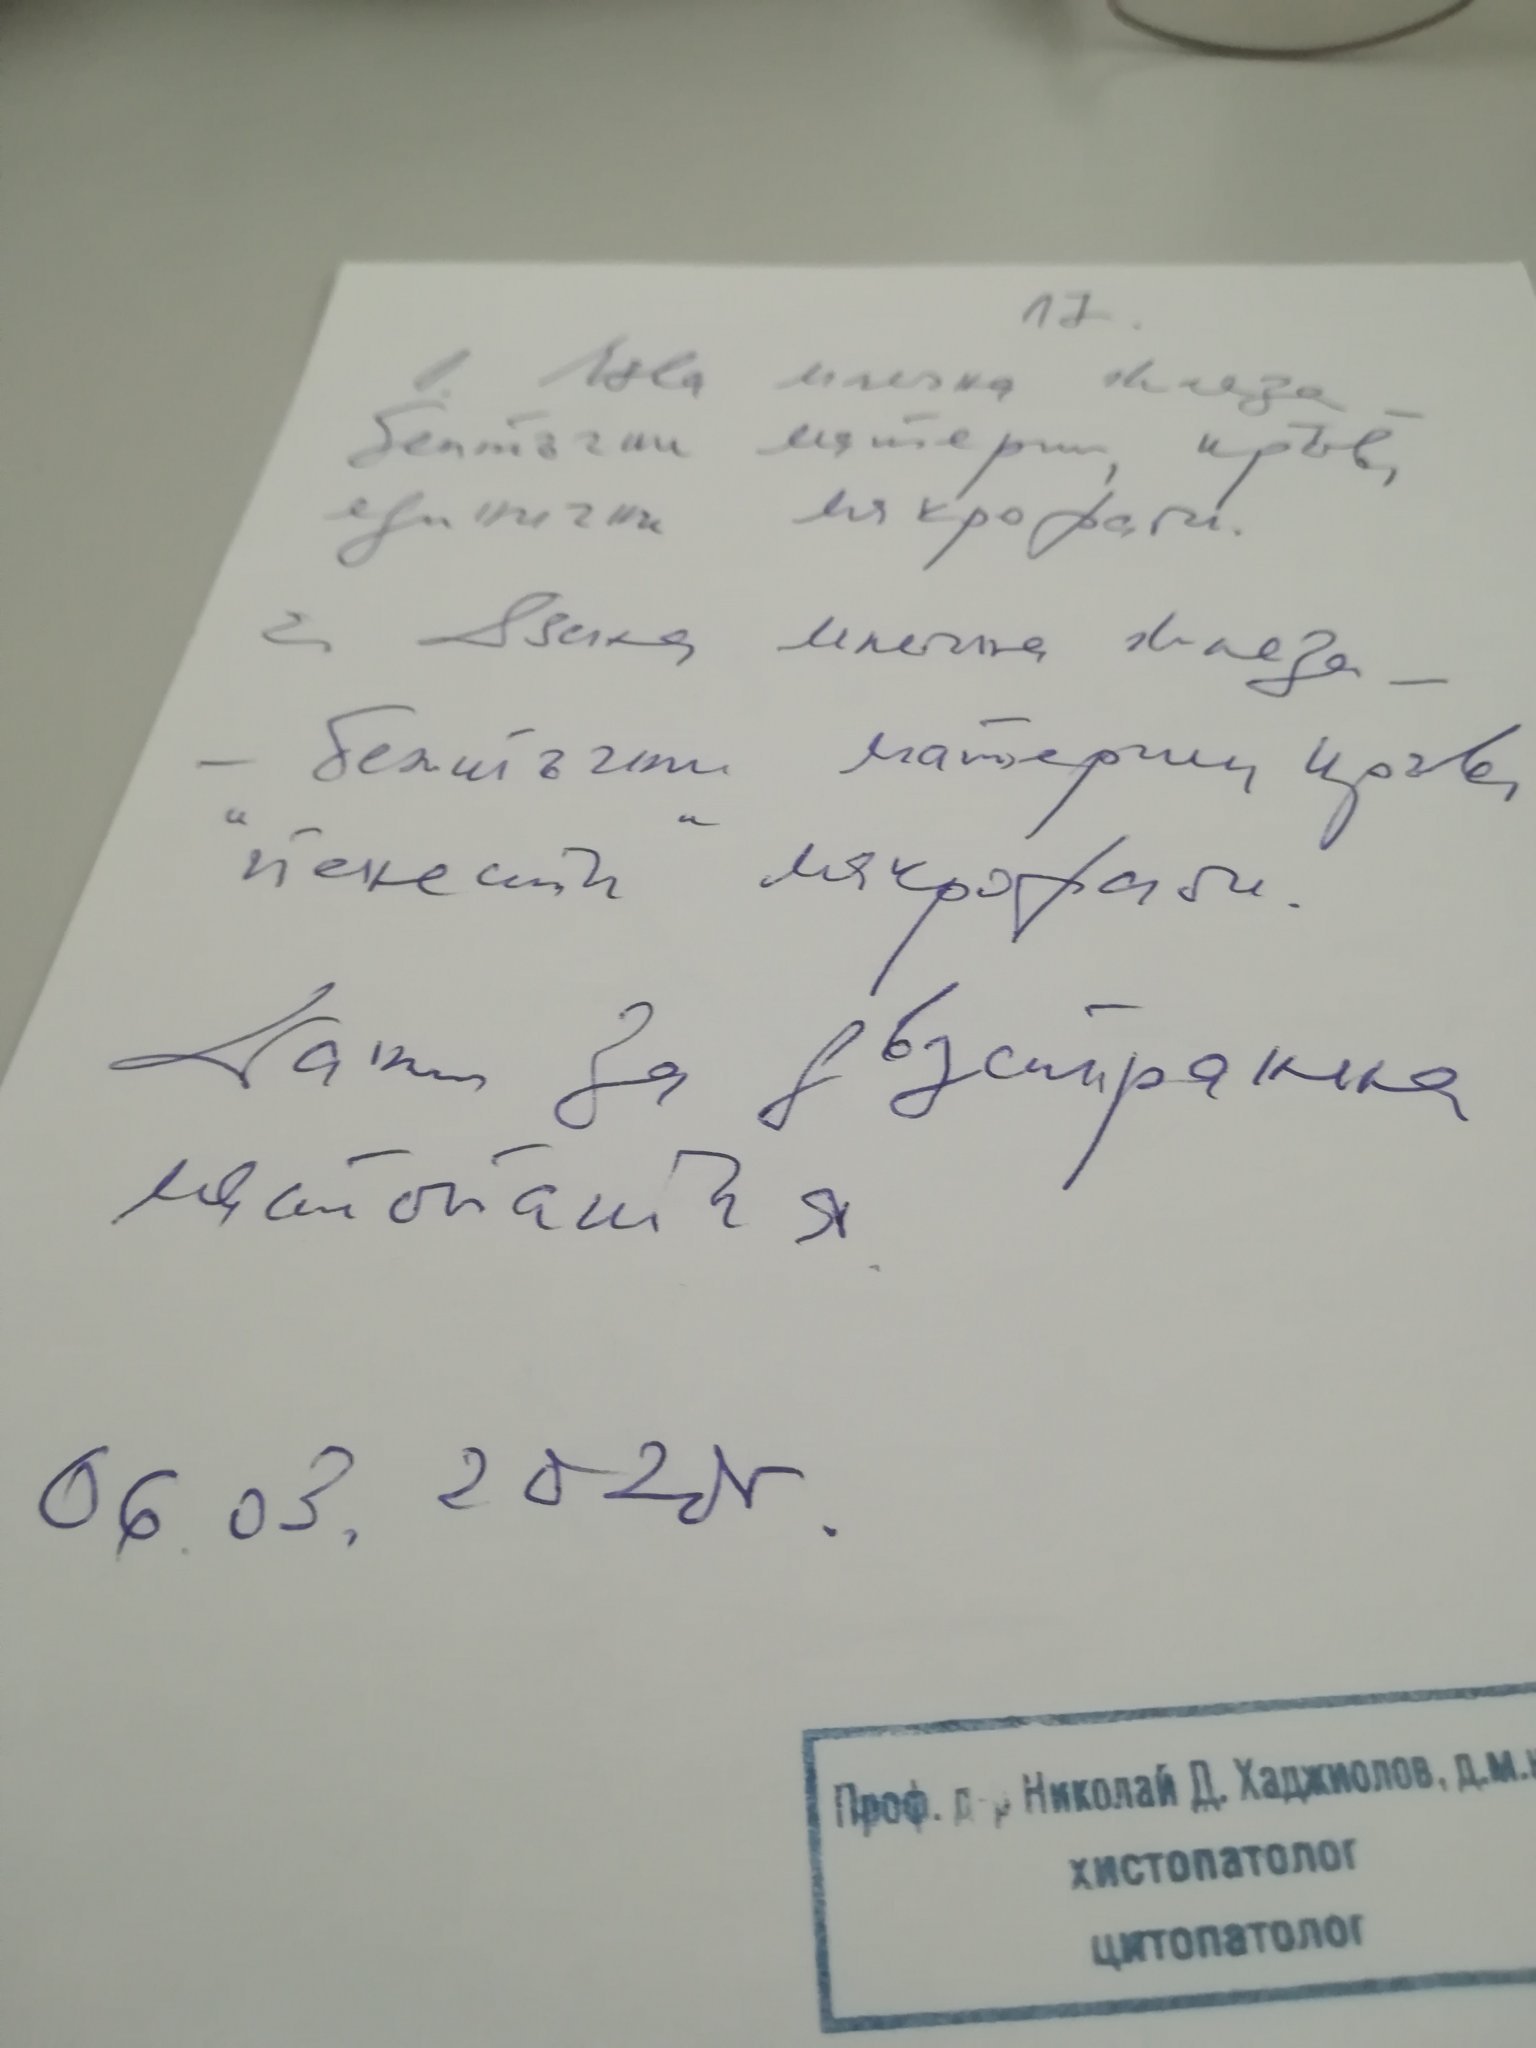 17.
1. Лява млечна жлеза –
белтъчни материи, кръв,
единични макрофаги.
2. Дясна млечна жлеза –
– белтъчни материи, кръв,
"пенести" макрофаги.
Данни за двустранна
мастопатия.
06.03.202
Проф. д-р Николай Д. Хаджиолов, д.м.н
хистопатолог
цитопатолог